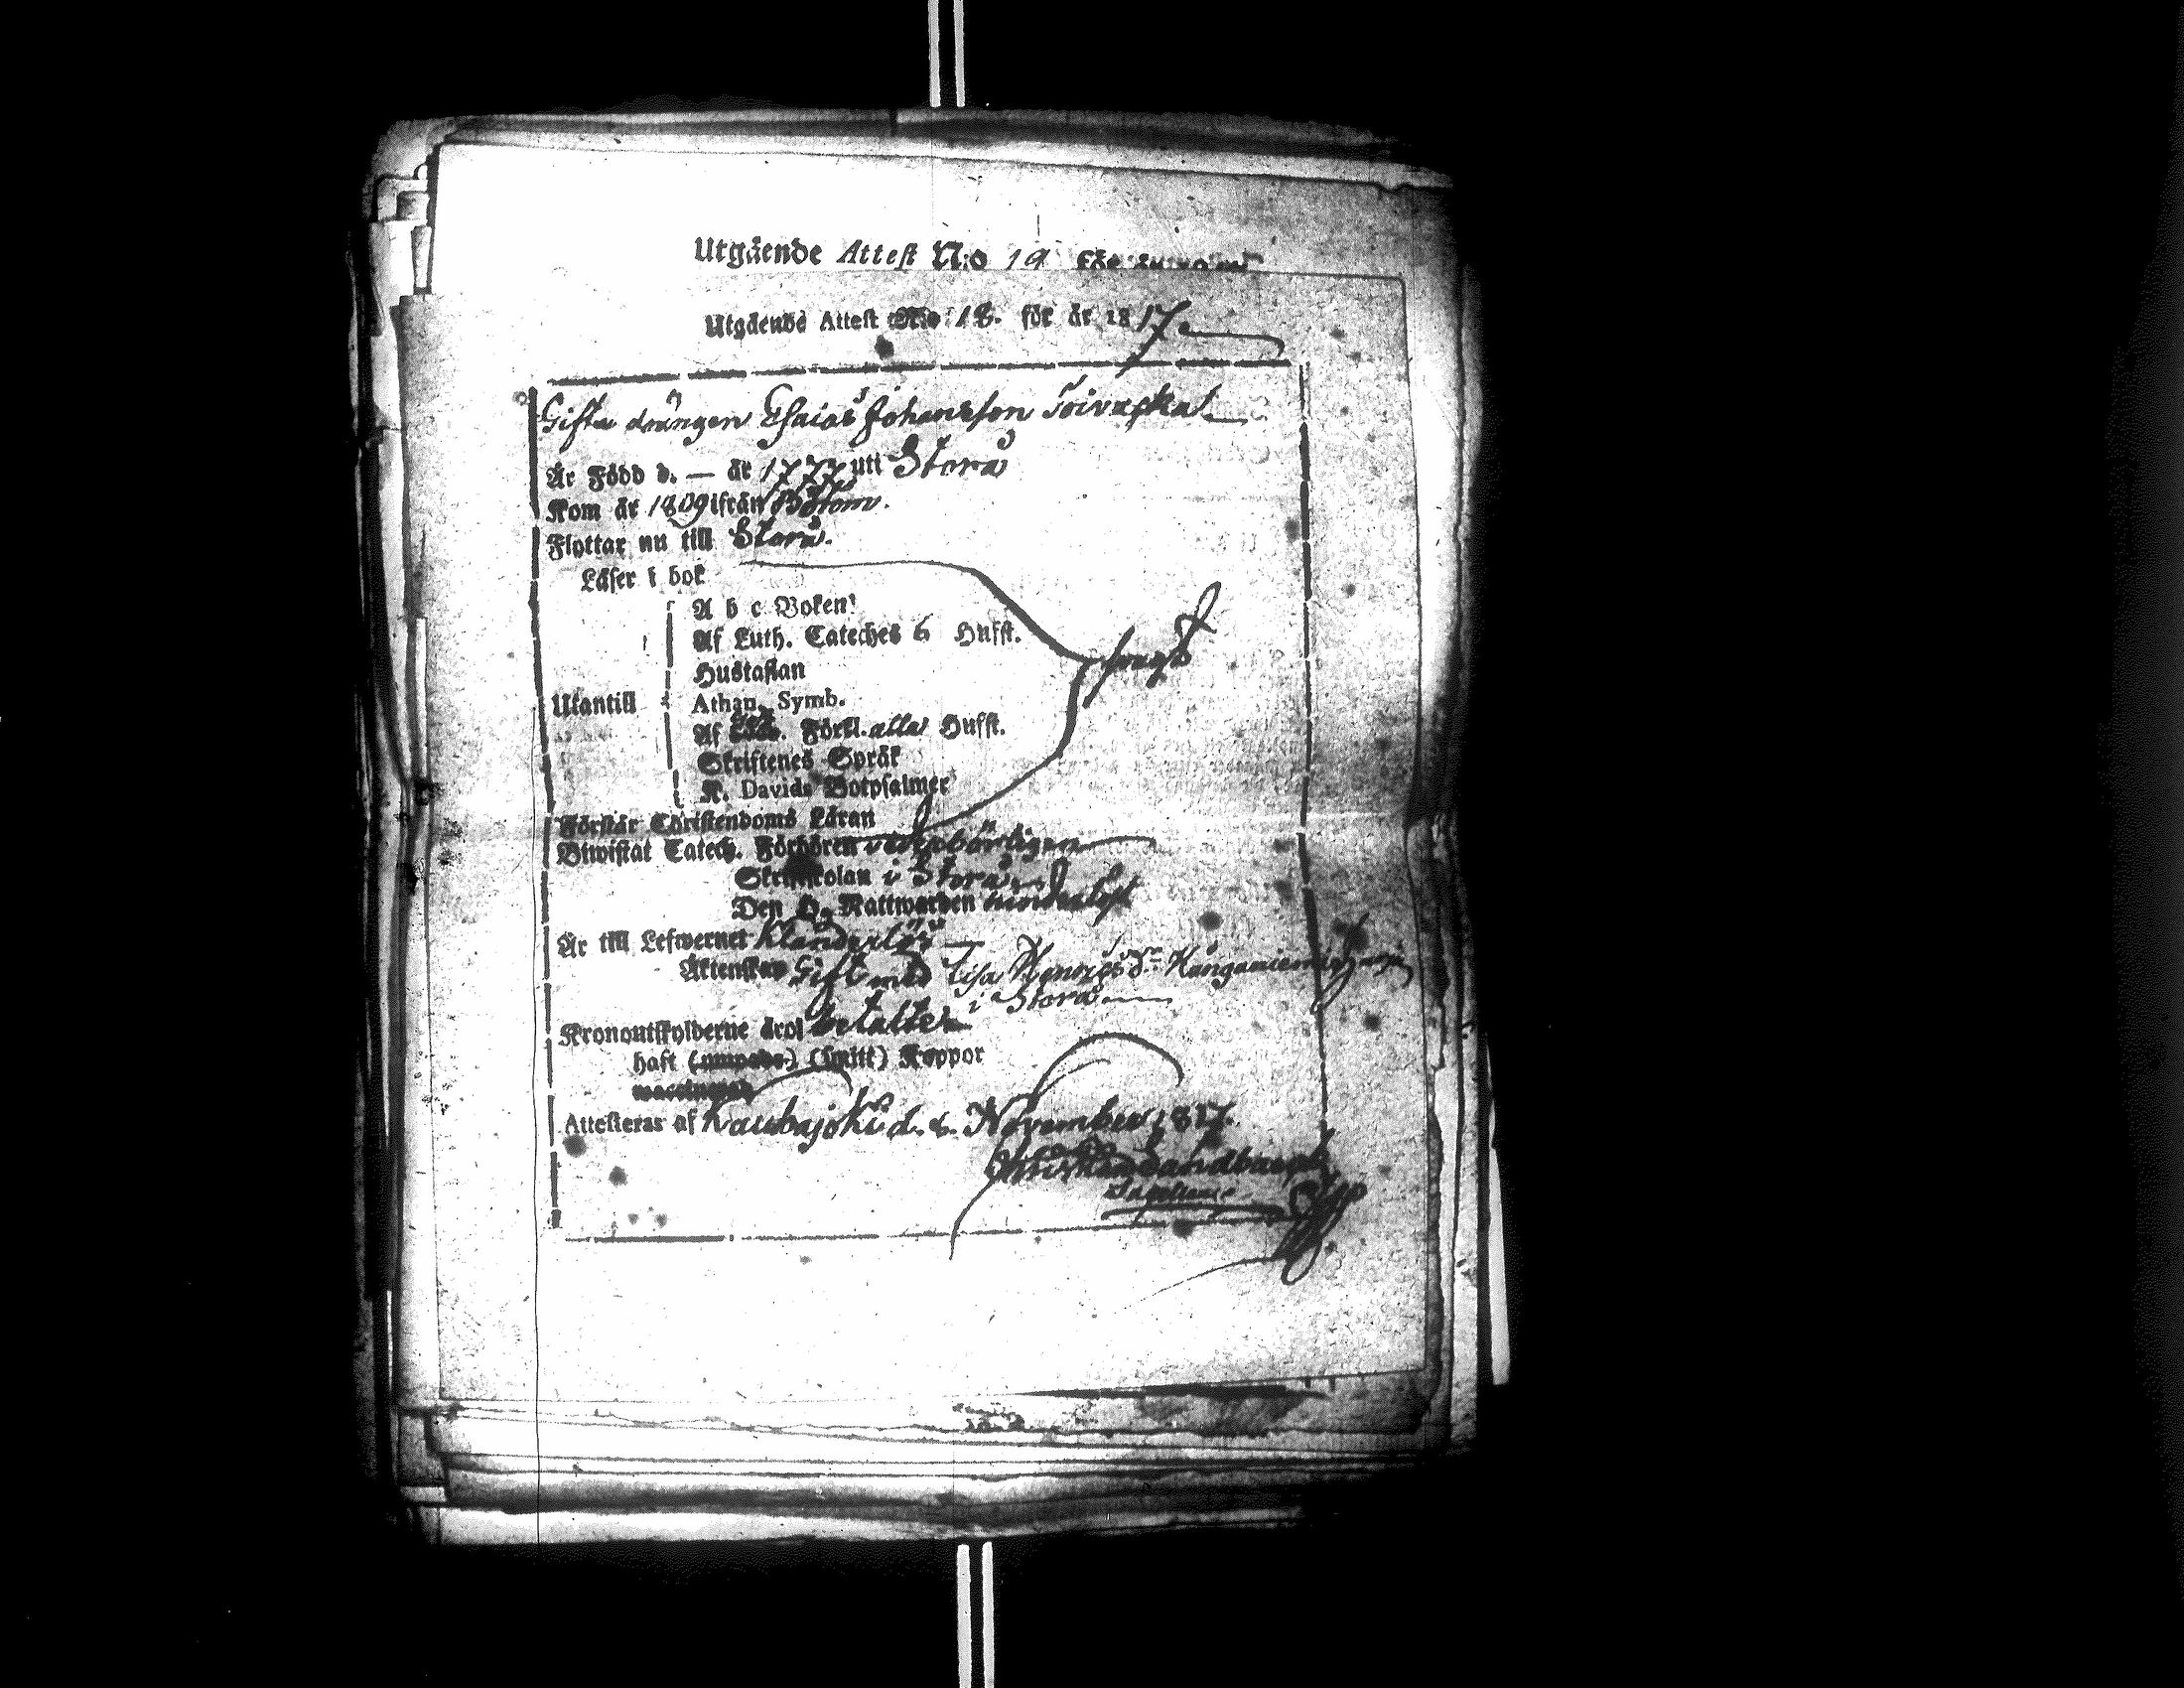 Utgående Attest N:o 19
Utgående Attest N:o 18. för år 1817
Gifta drängen Esaias Johansson Toivaska
Är Född d. — år 1777 uti Storå
Kom år 1809 ifrån Bötom.
Flyttar nu till Storå.
Läser i bok
A b c Boken
Af Luth. Cateches 6 Hufst.
Hustaflan
Utantill
Athan. Symb.
Af Förkl. alla Hufst.
Skriftenes Språk
K. Davids Botpsalmer
svagt
Förstår Christendoms Läran
Biwistat Catech. Förhören vederbörligen
Skriftskolan i Storå
Den H. Nattwarden
Är till Lefwernet Klanderlös
Äktenskap Gift med Lisa Henricsdr
i Storå
Kronoutskylderne äro betalte
haft (smitt) Koppor
Attesteras af Kauhajoki d. 6. November 1817.